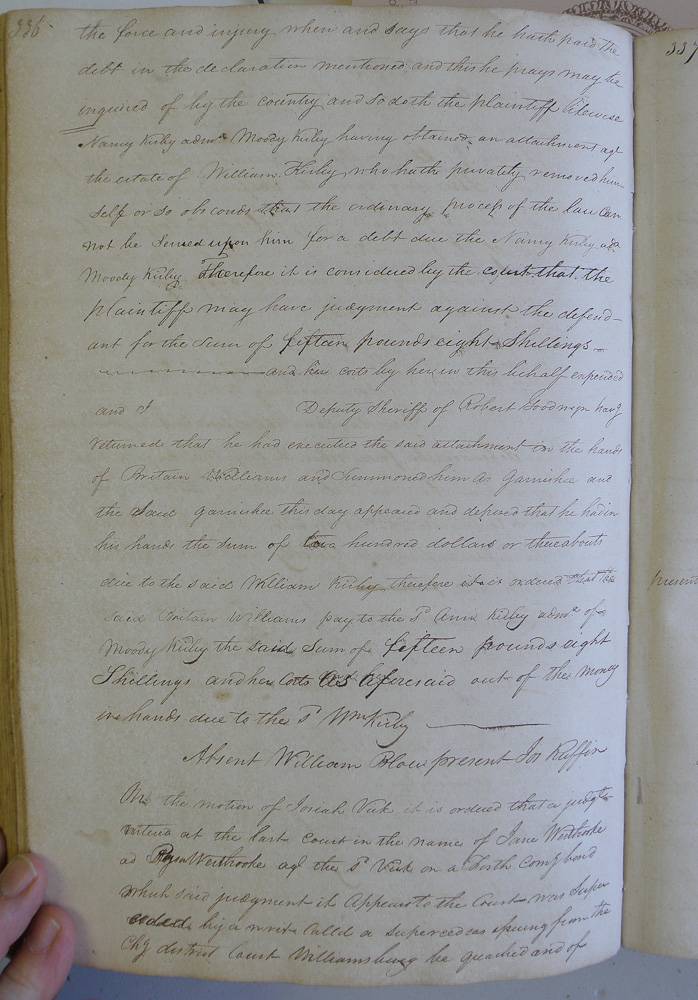 336
the force and injury when and says that he hath paid the
debt in the declaration mentioned and this he prays may be
inquired of by the country and so doth the plaintiff likewise
Nancy Kirby admx Moody Kirby having obtained an attachment agt
the estate of William Kirby who hath privately removed him
self or so obsconds that the ordinary process of the law can
not be Served upon him for a debt due the Nancy Kirby adx
Moody Kirby Therefore it is considered by the court that the
plaintiff may have judgment against the defend-
ant for the Sum of fifteen pounds eight Shillings
and her costs by her in this behalf expended
and I Deputy Sheriff of Robert Goodwyn havg
returned that he had executed the said attachment in the hands
of Britain Williams and Summoned him as Garnishee and
the Said garnishee this day appeared and deposed that he had in
his hands the sum of two hundred dollars or thereabouts
due to the said William Kirby therefore it is ordered that the
said Britain Williams pay to the Sd Ann Kirby admx of
Moody Kirby the said Sum of fifteen pounds eight
Shillings and her Costs as aforesaid out of the money
in hands due to the Sd Wm Kirby
Absent William Blow present Jos Ruffin
On the motion of Josiah Vick it is ordered that a judgt
at the last Court in the name of Jane Westbrooke
ad Westbrooke agt the Sd Vick on a Forth Comg bond
which said judgment it Appears to the Court was Super
ceded by a writ Called a supercedeas from the
Chy district Court Williamsburg be quashed and of
337
Present